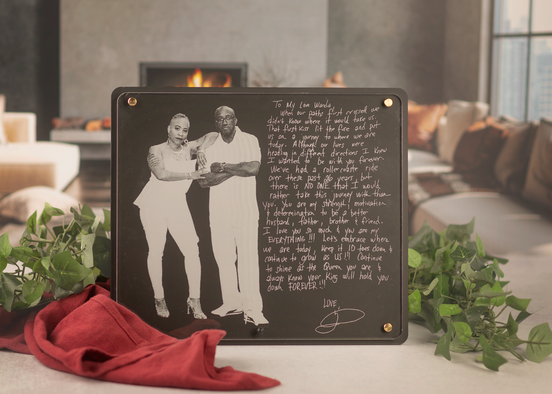 To My Love Wanda,
When our paths first crossed we
didn't know where it would take us.
That first kiss lit the fire and put
us on a journey to where we are
today. Although our lives were
heading in different directions I knew
I wanted to be with you forever.
We've had a rollercoaster ride
over these past 26 years, but
there is NO ONE that I would
rather take this journey with than
You. You are my strength, motivation
& determination to be a better
husband, father, brother & friend.
I love you so much & you are my
EVERYTHING!!! Let's embrace where
we are today, keep it 10 toes down &
continue to grow as US!!! Continue
to shine as the Queen you are, &
always know your King will hold you
down FOREVER!!!
LOVE,